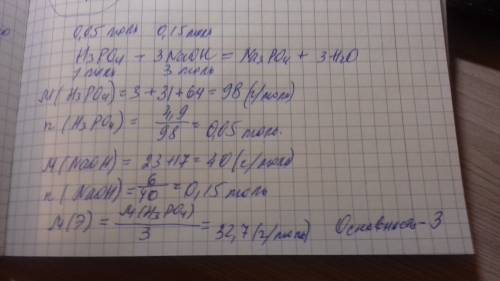 0,05 моль 0,15 моль
H₃PO₄ + 3NaOH = Na₃PO₄ + 3H₂O
1 моль 3 моль
M(H₃PO₄) = 3 + 31 + 64 = 98 (г/моль)
n(H₃PO₄) = 4,9/98 = 0,05 моль.
M(NaOH) = 23 + 17 = 40 (г/моль)
n(NaOH) = 6/40 = 0,15 моль
M(Э) = M(H₃PO₄)/3 = 32,7 (г/моль) Основность - 3